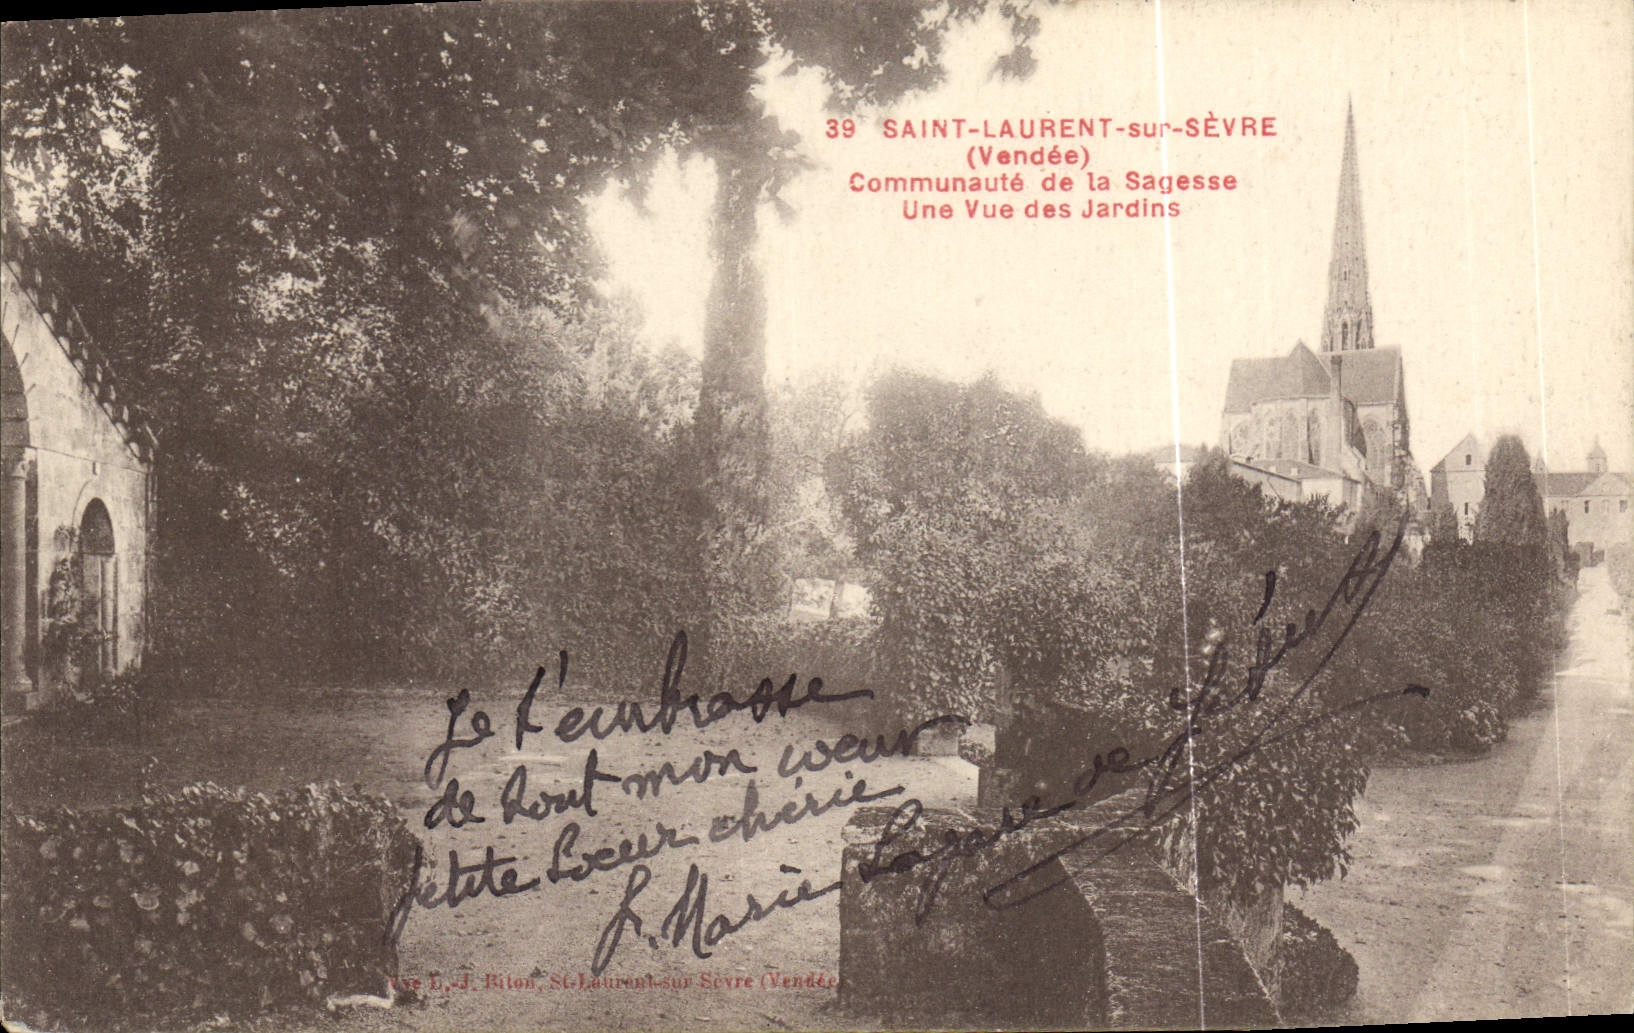 39 SAINT-LAURENT-sur-SÈVRE
(Vendée)
Communauté de la Sagesse
Une Vue des Jardins
Je t'embrasse
de tout mon cœur
petite Sœur chérie
S. Marie Lazare de Jésus
Vve L.-J. Biton, St-Laurent-sur Sèvre (Vendée